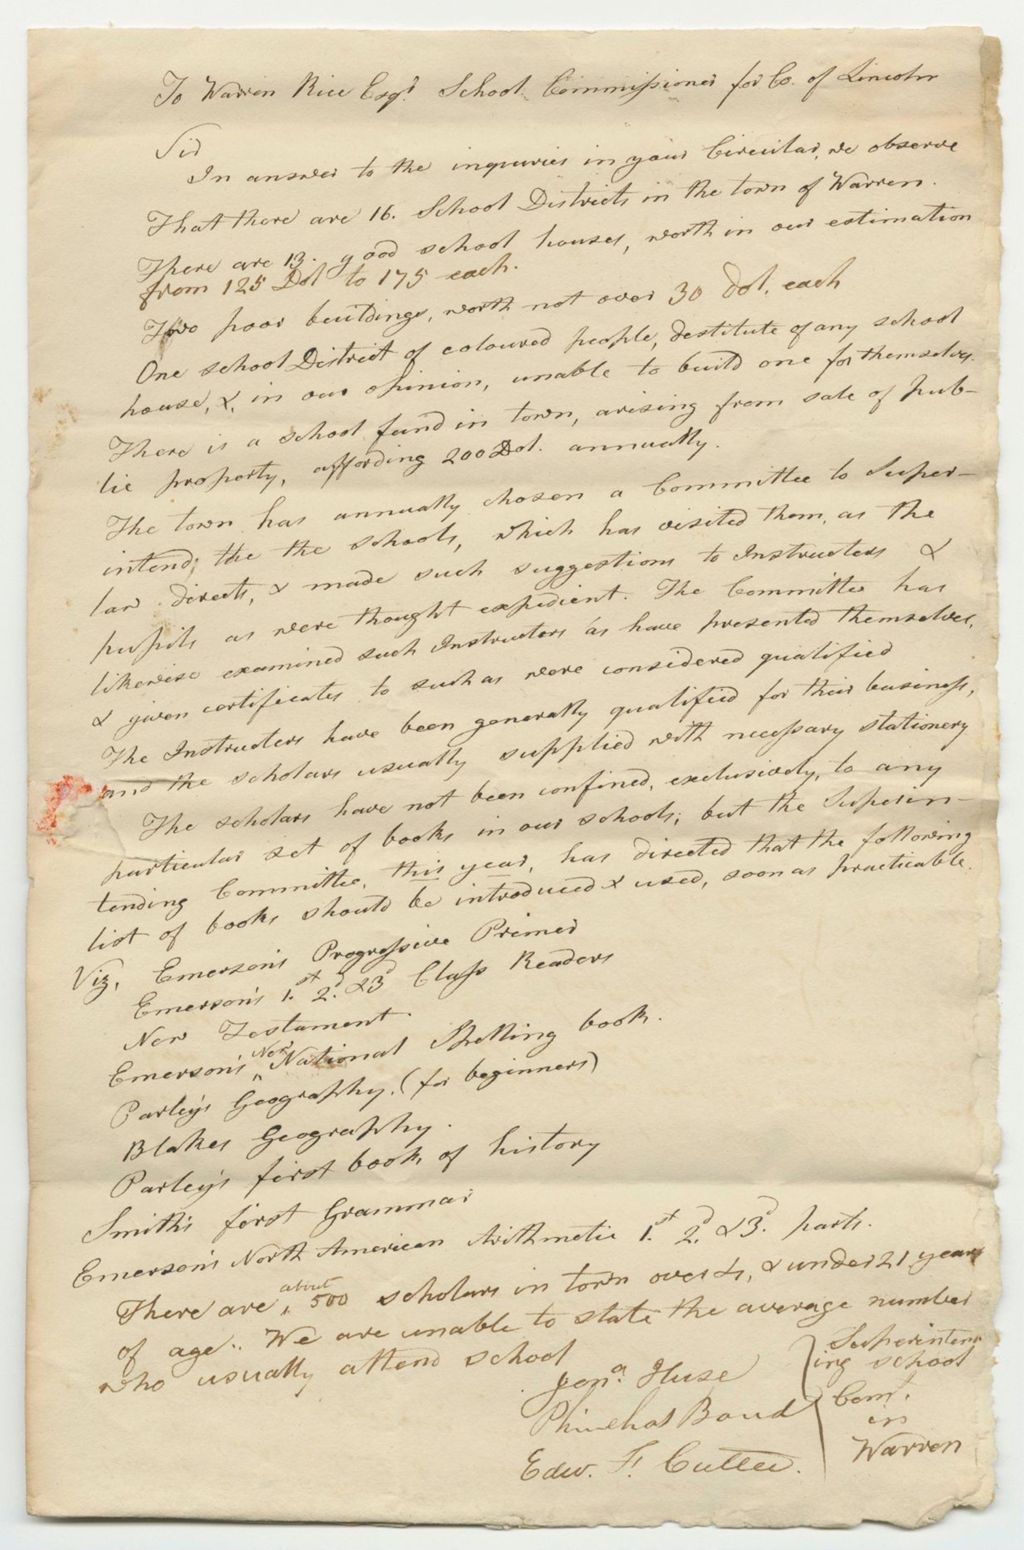 To Warren Rice Esqr. School Commissioner for Co. of Lincoln
Sir
In answer to the inquiries in your Circular, we observe
That there are 16. School Districts in the town of Warren.
There are 13. good school houses, worth in our estimation
from 125 Dol to 175 each.
Two poor buildings, worth not over 30 Dol. each
One school District of coloured people, destitute of any school
house, &, in our opinion, unable to build one for themselves.
There is a school fund in town, arising from sale of pub-
lic property, affording 200 Dol. annually.
The town has annually chosen a Committee to Super-
intend, the the schools, which has visited them, as the
law directs, & made such suggestions to Instructers &
pupils as were thought expedient. The Committee has
likewise examined such Instructers as have presented themselves,
& given certificates to such as were considered qualified
The Instructers have been generally qualified for their business,
and the scholars usually supplied with necessary stationery
The scholars have not been confined, exclusively, to any
particular set of books in our schools; but the Superin-
tending Committee, this year, has directed that the following
list of books should be introduced & used, soon as practicable.
Viz, Emerson's Progressive Primer
Emerson's 1.st 2.d & 3d Class Readers
New Testament.
Emerson's New National Spelling book.
Parley's Geography. (for beginners)
Blakes Geography.
Parley's first book of history
Smith's first Grammar
Emerson's North American Arithmetic 1.st 2.d & 3.d parts.
There are about 500 scholars in town over 4, & under 21 years
of age. We are unable to state the average number
who usually attend school
Jona. Huse
Edw. F. Cutter.
Superintend
ing school
Comt.
in
Warren